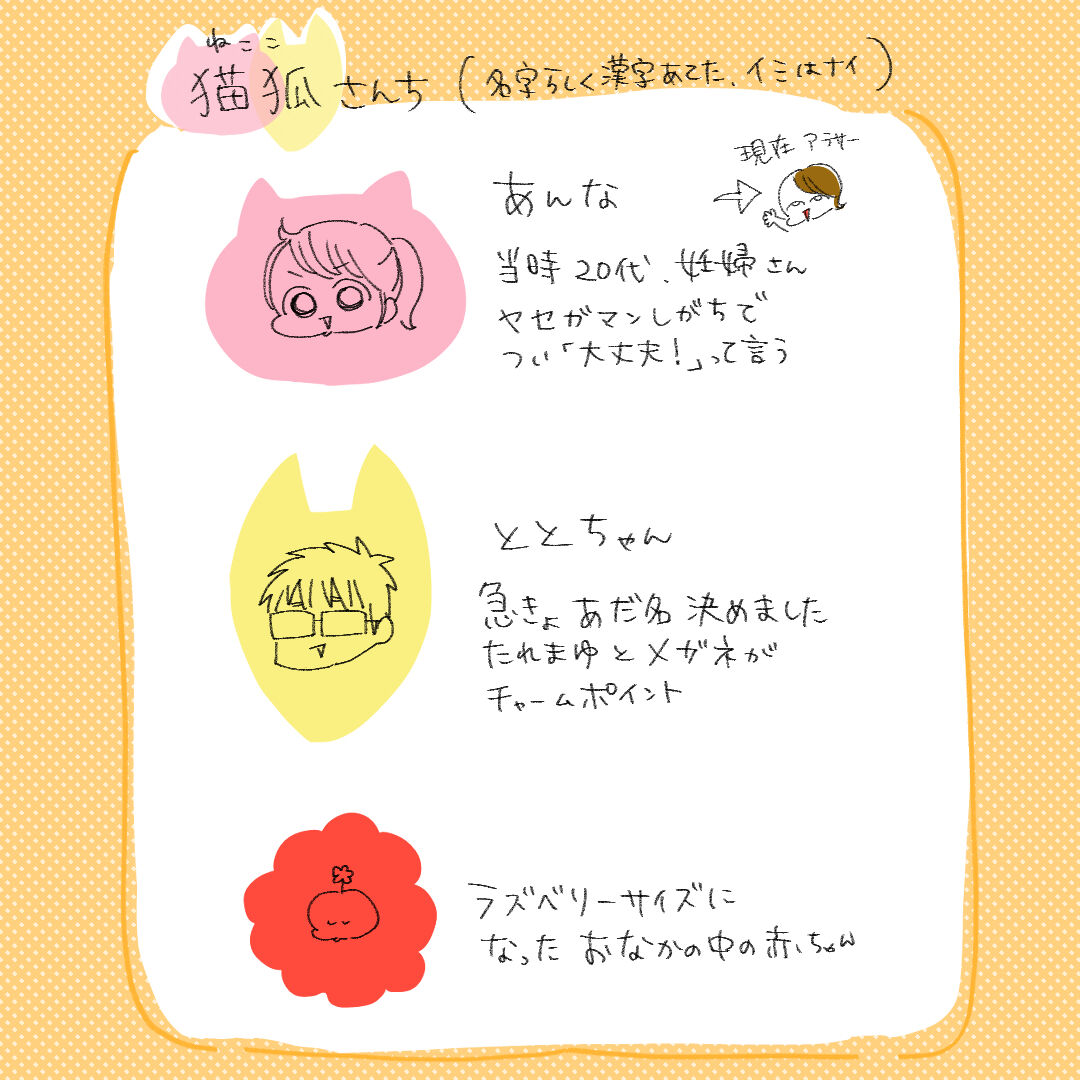 ねここ
猫狐さんち(名字らしく漢字あてた、イミはナイ)
現在アラサー
あんな
当時20代、妊婦さん
ヤセガマンしがちで
つい「大丈夫!」って言う
ととちゃん
急きょあだ名決めました
たれまゆとメガネが
チャームポイント
ラズベリーサイズに
なったおなかの中の赤ちゃん